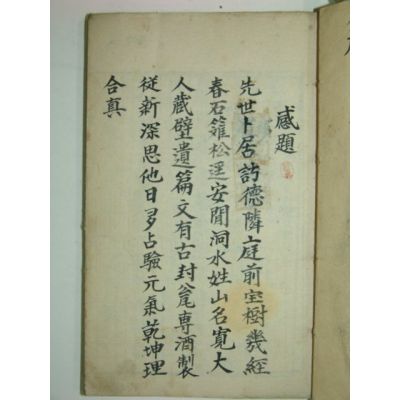 感題
先世卜居訪德隣上庭前宝樹幾經
春石籬松逕安閒洞水姓山名寬大
人藏壁遺篇文有古封瓮專酒製
従新深思他日多占驗元氣乾坤理
合真